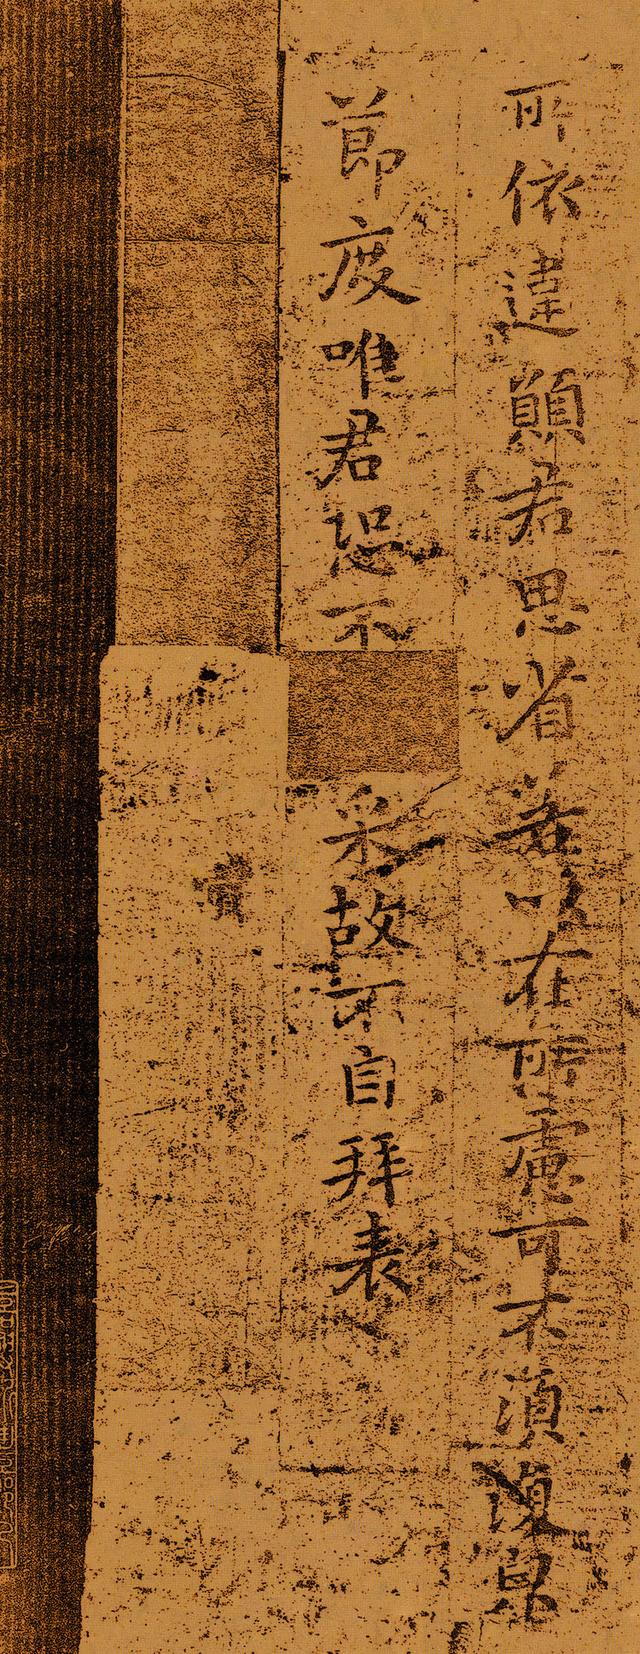 所依違願君思省無以在所慮可不須復皃
節度唯君恐不
采故不自拜表